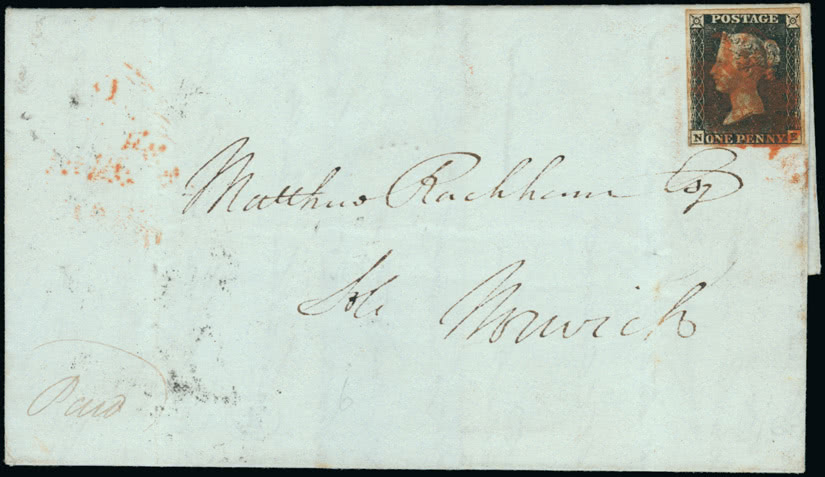 POSTAGE
N ONE PENNY E
Matthew Rackham Esq
Norwich
Paid